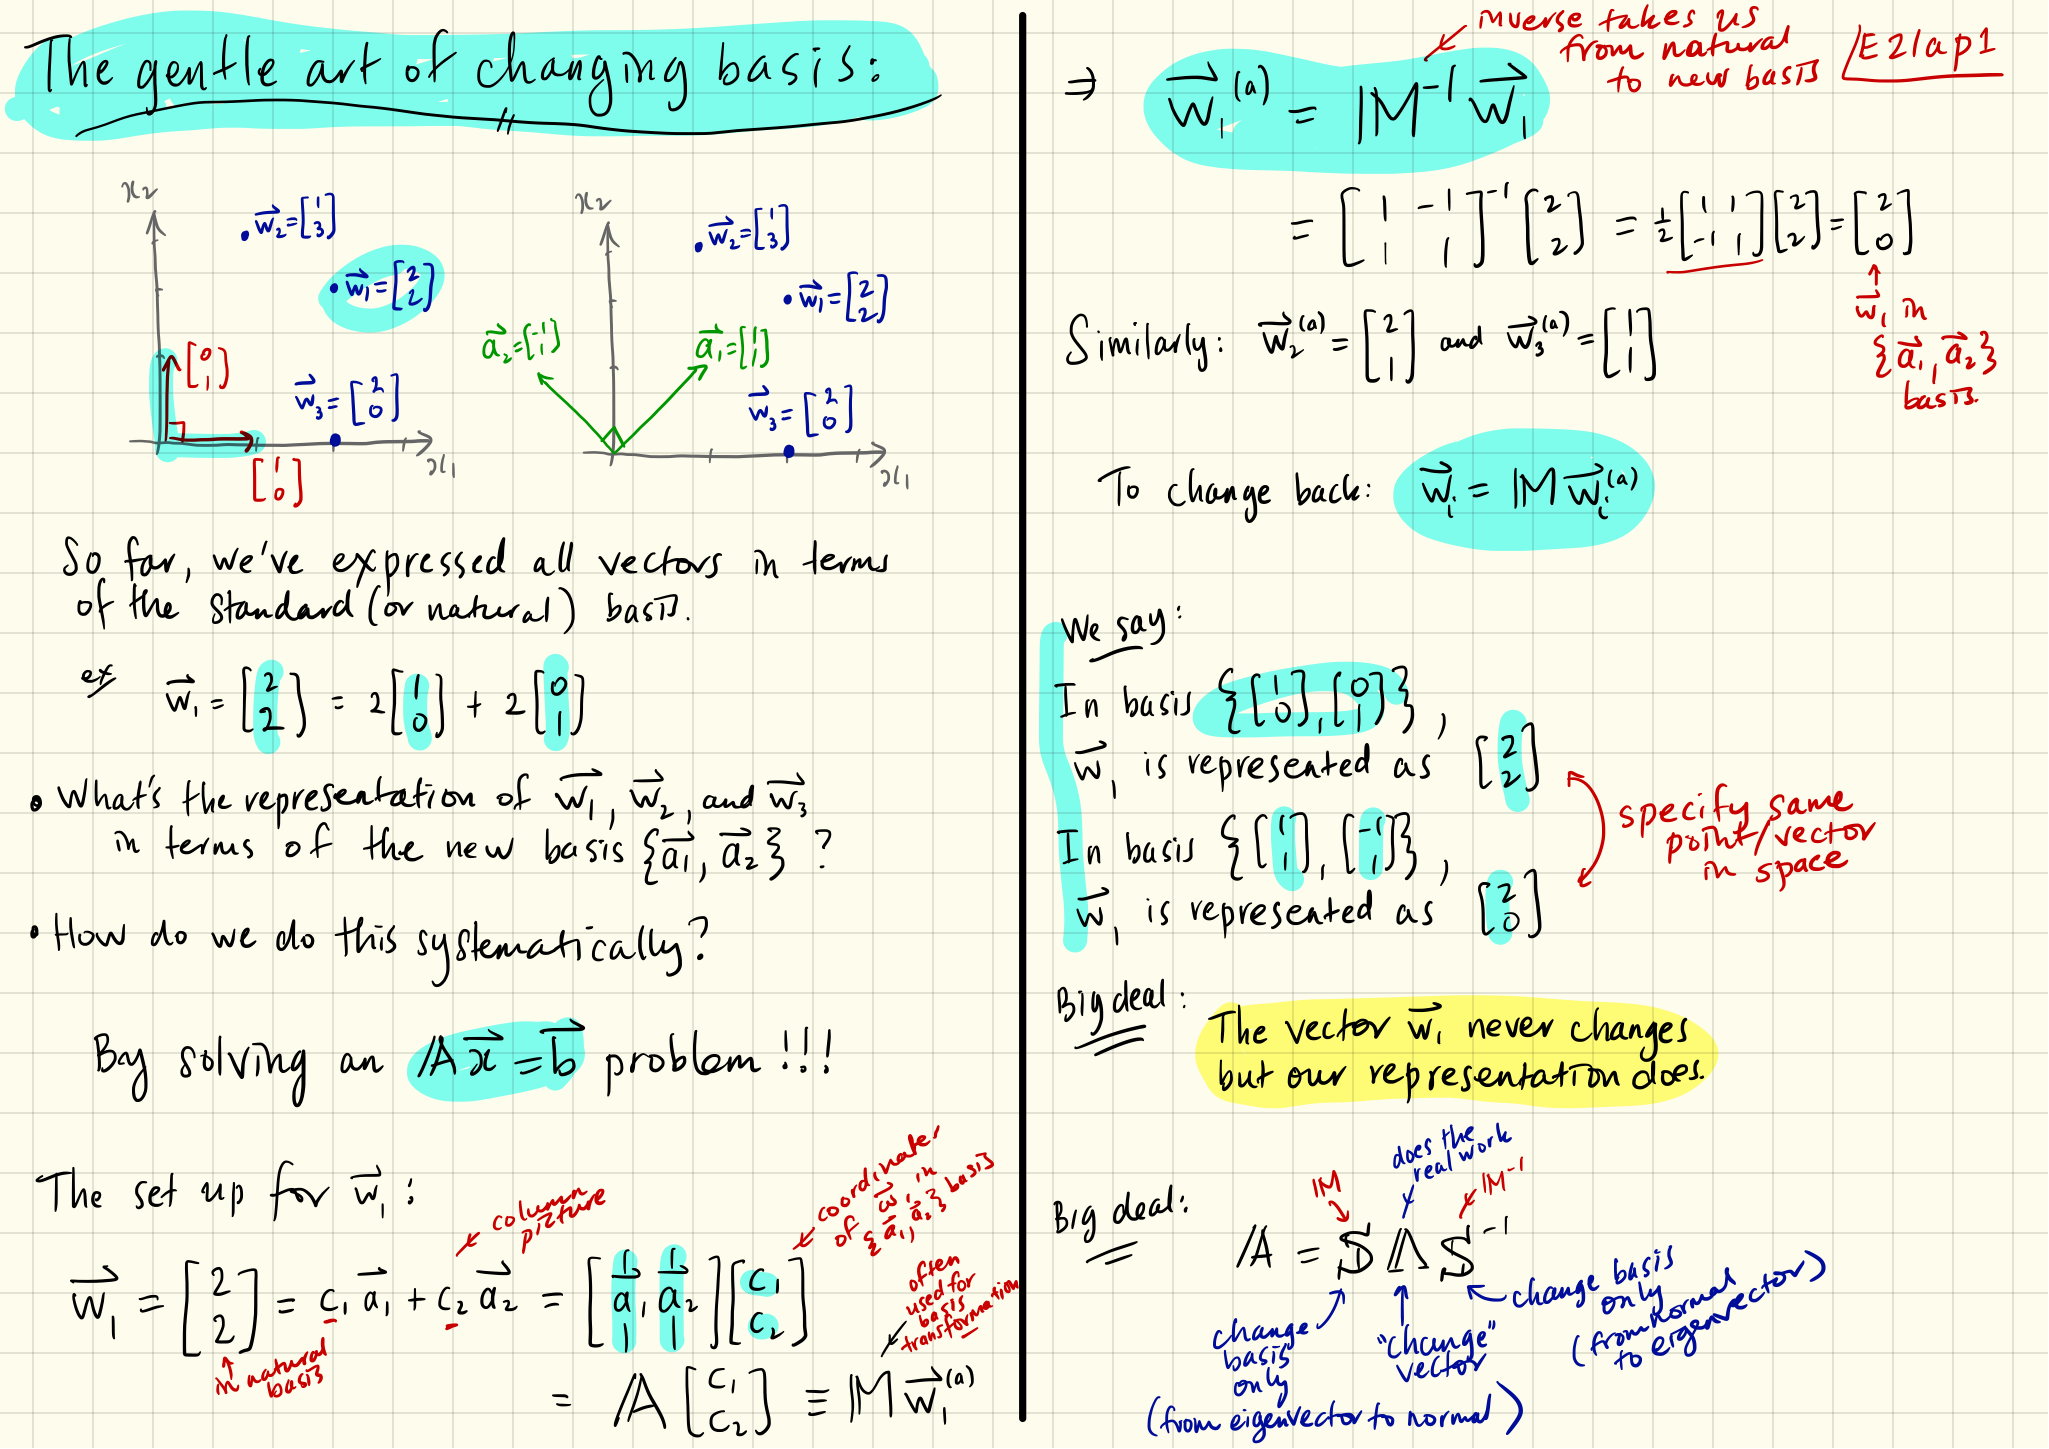 The gentle art of changing basis:
x₂
w⃗₂ = [1 3]
w⃗₁ = [2 2]
[0 1]
w⃗₃ = [2 0]
[1 0]
x₁
x₂
w⃗₂ = [1 3]
w⃗₁ = [2 2]
a⃗₂ = [-1 1]
a⃗₁ = [1 1]
w⃗₃ = [2 0]
x₁
So far, we've expressed all vectors in terms
of the standard (or natural) basis.
ex w⃗₁ = [2 2] = 2[1 0] + 2[0 1]
• What's the representation of w⃗₁, w⃗₂, and w⃗₃
in terms of the new basis {a⃗₁, a⃗₂} ?
• How do we do this systematically?
By solving an A x⃗ = b⃗ problem !!!
The set up for w⃗₁ :
column
picture
coordinates
of w⃗₁ in
{a⃗₁, a⃗₂} basis
w⃗₁ = [2 2] = c₁ a⃗₁ + c₂ a⃗₂ = [a⃗₁ a⃗₂] [c₁ c₂]
in natural
basis
often
used for
basis
transformation
= A [c₁ c₂] ≡ M w⃗₁⁽ᵃ⁾
inverse takes us
from natural
to new basis
E21ap1
⇒ w⃗₁⁽ᵃ⁾ = M⁻¹ w⃗₁
= [1 -1 1 1]⁻¹ [2 2] = ½ [1 1 -1 1] [2 2] = [2 0]
w⃗₁ in
{a⃗₁, a⃗₂}
basis.
Similarly: w⃗₂⁽ᵃ⁾ = [2 1] and w⃗₃⁽ᵃ⁾ = [1 1]
To change back: w⃗ᵢ = M w⃗ᵢ⁽ᵃ⁾
We say:
In basis {[1 0], [0 1]},
w⃗₁ is represented as [2 2]
In basis {[1 1], [-1 1]},
w⃗₁ is represented as [2 0]
specify same
point/vector
in space
Big deal:
The vector w⃗₁ never changes
but our representation does.
Big deal:
M
does the
real work
M⁻¹
A = S Λ S⁻¹
change
basis
only
(from eigenvector to normal)
"change"
vector
change basis
only
(from normal
to eigenvector)